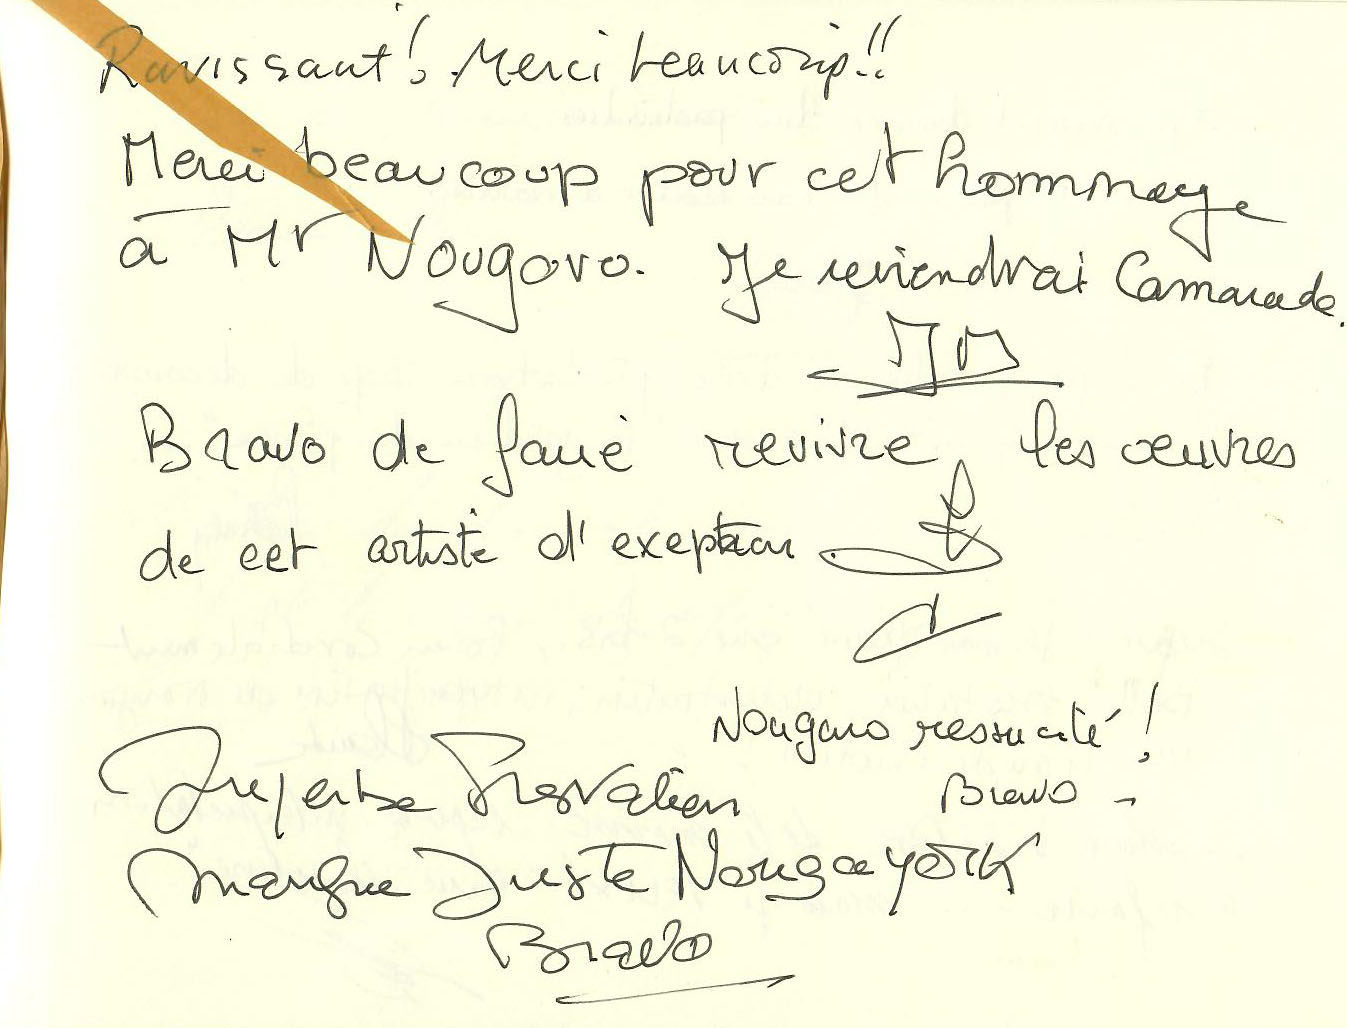 Ravissant! Merci beaucoup!!
Merci beaucoup pour cet hommage
à Mr Nougaro. Je reviendrai Camarade.
Bravo de faire revivre les œuvres
de cet artiste d'exeption
Nougaro ressucité!
Bravo -
Superbe Prestation
manque Juste Nougayork
Bravo